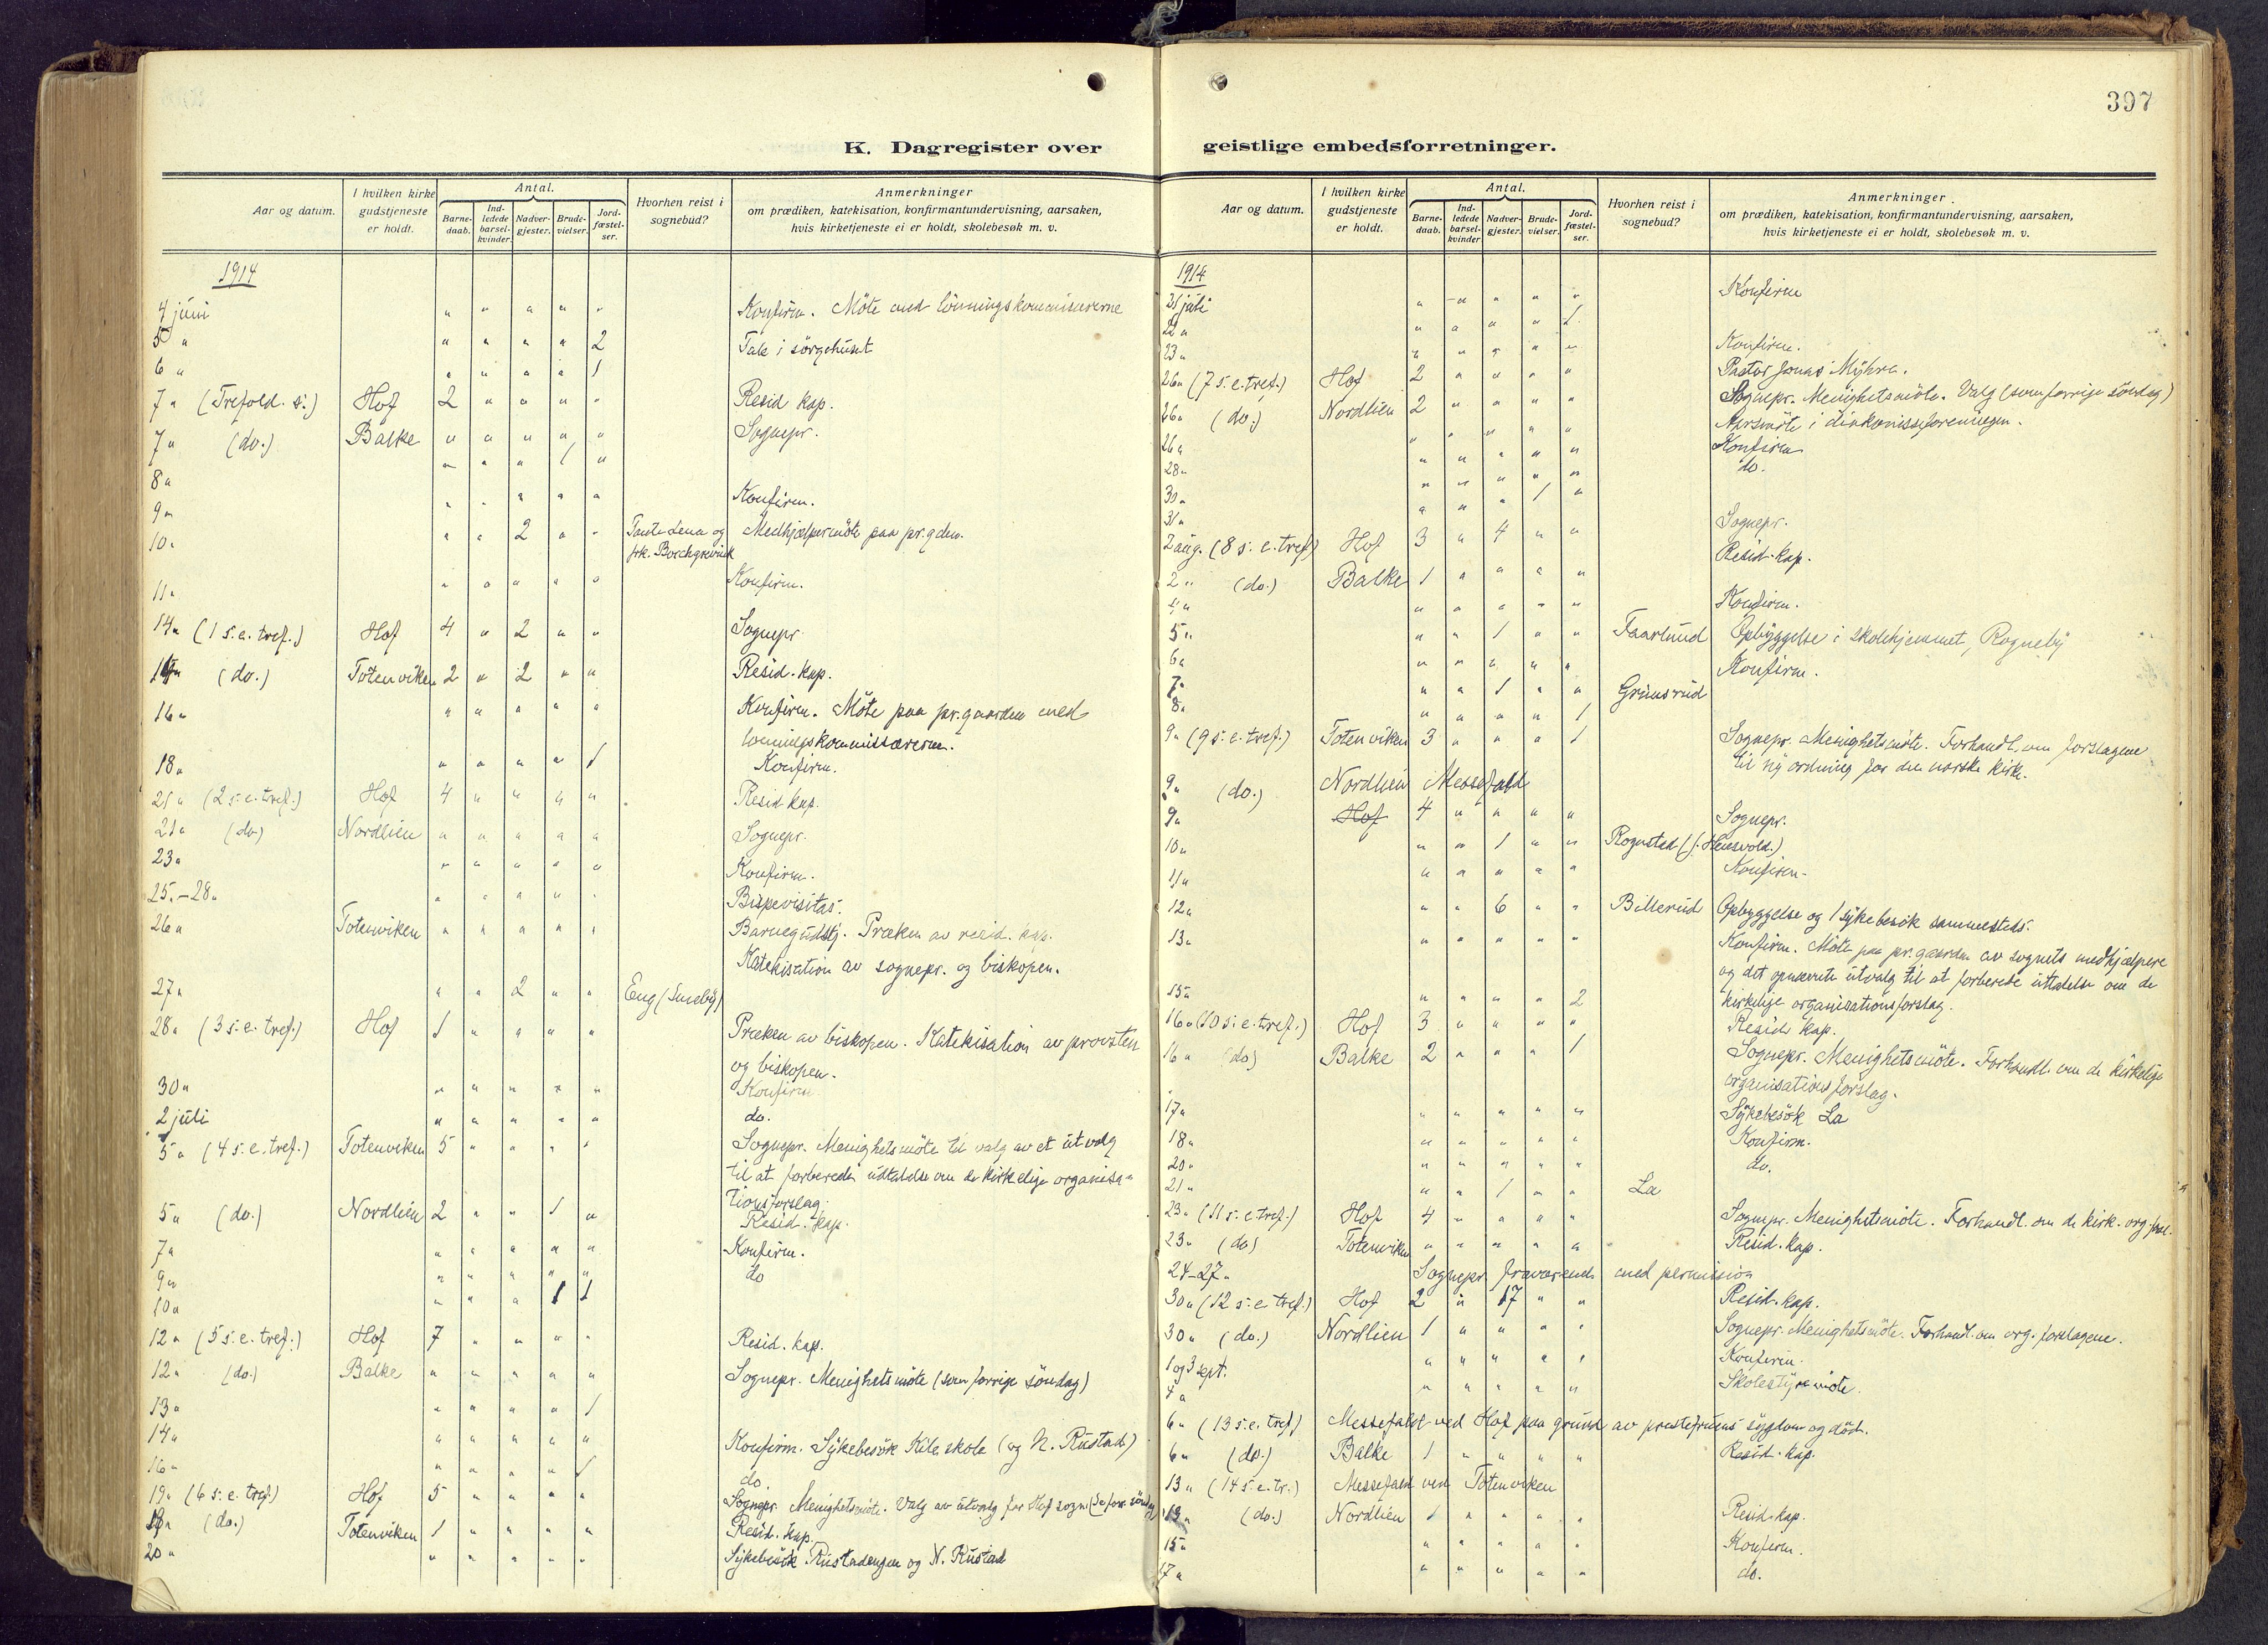 397
K. Dagregister over
Aar og datum. I hvilken kirke gudstjeneste er holdt. Antal. Barne-daab. Ind-ledede barsel-kvinder. Nadver-gjester. Brude-vielser. Jord-fæstel-ser. Hvorhen reist i sognebud? Anmerkninger om prædiken, katekisation, konfirmantundervisning, aarsaken, hvis kirketjeneste ei er holdt, skolebesøk m. v.
1914
4 juni " " " " " Konfirm. Möte med lönningskommissærerne
5 " " " " " 2 Tale i sörgehuset
6 " " " " " 1
7 " (Trefold. s.) Hof 2 " " " " Resid kap.
7 " (do.) Balke " " " " " Sognepr.
8 " " " " 1 "
9 " " " " " " Konfirm.
10 " " " 2 " " Tante Lena og frk. Borchgrevink Medhjælpermöte paa pr.gden.
11 " " " " " " Konfirm.
14 " (1 s. e. tref.) Hof 4 " 2 " " Sognepr.
14 " (do.) Totenviken 2 " 2 " " Resid. kap.
16 " " " " " " Konfirm. Möte paa pr.gaarden med
lönningskommissærerne.
18 " " " " " 1 Konfirm.
21 " (2 s. e. tref.) Hof 4 " " " " Resid kap.
21 " (do) Nordlien " " " " " Sognepr.
23 " " " " " " Konfirm.
25.-28. " " " " " Bispevisitas.
26 " Totenviken " " " " " Barnegudstj. Præken av resid. kap.
Katekisation av sognepr. og biskopen.
27 " " " 2 " " Eng (Smeby)
28 " (3 s. e. tref.) Hof 1 " " " " Præken av biskopen. Katekisation av provsten
og biskopen.
30 " " " " " " Konfirm
2 juli " " " " " do.
5 " (4 s. e. tref.) Totenviken 5 " " " " Sognepr. Menighetsmöte til valg av et utvalg
til at forberede udtalelse om de kirkelige organisa-
tionsforslag.
5 " (do.) Nordlien 2 " " 1 " Resid. kap.
7 " " " " " " Konfirm.
9 " " " " " " do
10 " " " " 1 1
12 " (5 s. e. tref.) Hof 7 " " " " Resid. kap.
12 " (do.) Balke " " " " " Sognepr. Menighetsmöte (som forrige söndag)
13 " " " " " 1
14 " " " " " " Konfirm. Sykebesök Kile skole (og N. Rustad)
16 " " " " " 1 do.
19 " (6 s. e. tref.) Hof 5 " " " " Sognepr. Menighetsmöte. Valg av utvalg for Hof sogn (Se forr. söndag)
19 " (do.) Totenviken 1 " " " " Resid. kap.
20 " " " " " " Sykebesök Rustadengen og N. Rustad
geistlige embedsforretninger.
Aar og datum. I hvilken kirke gudstjeneste er holdt. Antal. Barne-daab. Ind-ledede barsel-kvinder Nadver-gjester. Brude-vielser. Jord-fæstel-ser. Hvorhen reist i sognebud? Anmerkninger om prædiken, katekisation, konfirmantundervisning, aarsaken, hvis kirketjeneste ei er holdt, skolebesøk m. v.
1914
21 juli " " " " " Konfirm
22 " " " " " 1
23 " " " " " " Konfirm.
26 " (7 s. e. tref.) Hof 2 " " " " Pastor Jonas Myhre.
26 " (do.) Nordlien 2 " " " " Sognepr. Menighetsmöte. Valg (som forrige söndag)
26 " " " " " " Aarsmöte i diakonisseforeningen.
28 " " " " " " Konfirm
30 " " " " " " do.
31 " " " " 1 "
2 aug. (8 s. e. tref) Hof 3 " 4 " " Sognepr.
2 " (do.) Balke 1 " " " " Resid. kap.
4 " " " " " " Konfirm.
5 " " " 1 " " Faarlund Opbyggelse i skolehjemmet, Rogneby
6 " " " " " " Konfirm.
7 " " " 1 " " Grimsrud
8 " " " " " 1
9 " (9 s. e. tref.) Totenviken 3 " " " 1 Sognepr. Menighetsmöte. Forhandl. om forslagene
til ny ordning for den norske kirke.
9 " (do.) Nordlien Messefald
9 " Hof 4 " " " " Sognepr.
10 " " " 1 " " Rognstad (i Heksvold.)
11 " " " " " " Konfirm.
12 " " " 6 " " Billerud Opbyggelse og 1 sykebesök sammesteds.
13 " " " " " " Konfirm. Möte paa pr.gaarden av sognets medhjælpere
og det opnævnte utvalg til at forberede uttalelse om de
kirkelige organisationsforslag.
15 " " " " " 2
16 " (10 s. e. tref.) Hof 3 " " " " Resid. kap.
16 " (do) Balke 2 " " " 1 Sognepr. Menighetsmöte. Forhandl. om de kirkelige
organisationsforslag.
17 " " " " " " Sykebesök La
18 " " " " " " Konfirm.
20 " " " " " " do.
21 " " " 1 " " La
23 " (11 s. e. tref.) Hof 4 " " " " Sognepr. Menighetsmöte. Forhandl. om de kirk. org. forsl.
23 " (do) Totenviken " " " " " Resid. kap.
24-27 " Sognepr. fraværende med permission
30 " (12 s. e. tref.) Hof 2 " 17 " " Resid. kap.
30 " (do.) Nordlien 1 " " " " Sognepr. Menighetsmöte. Forhandl. om org. forslagene.
1 og 3 sept. " " " " " Konfirm.
4 " " " " " " Skolestyremöte.
6 " (13 s. e. tref) Messefald ved Hof paa grund av prestefruens sygdom og död.
6 " (do.) Balke 1 " " " " Resid. kap.
13 " (14 s. e. tr.) Messefald ved Totenviken
13 " (do.) Nordlien 1 " " " " Resid. kap.
15 " " " " " " Konfirm.
17 " " " " " " do.